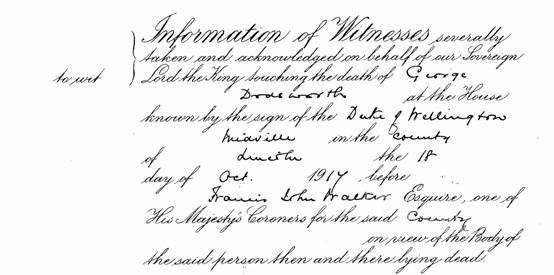 Information of Witnesses severally
taken and acknowledged on behalf of our Sovereign
to wit } Lord the King touching the death of George
Dodsworth at the House
known by the sign of the Duke of Wellington
Midville in the County
of Lincoln the 18
day of Oct. 1917 before
Francis John Walker Esquire, one of
His Majesty's Coroners for the said County
on view of the Body of
the said person then and there lying dead.